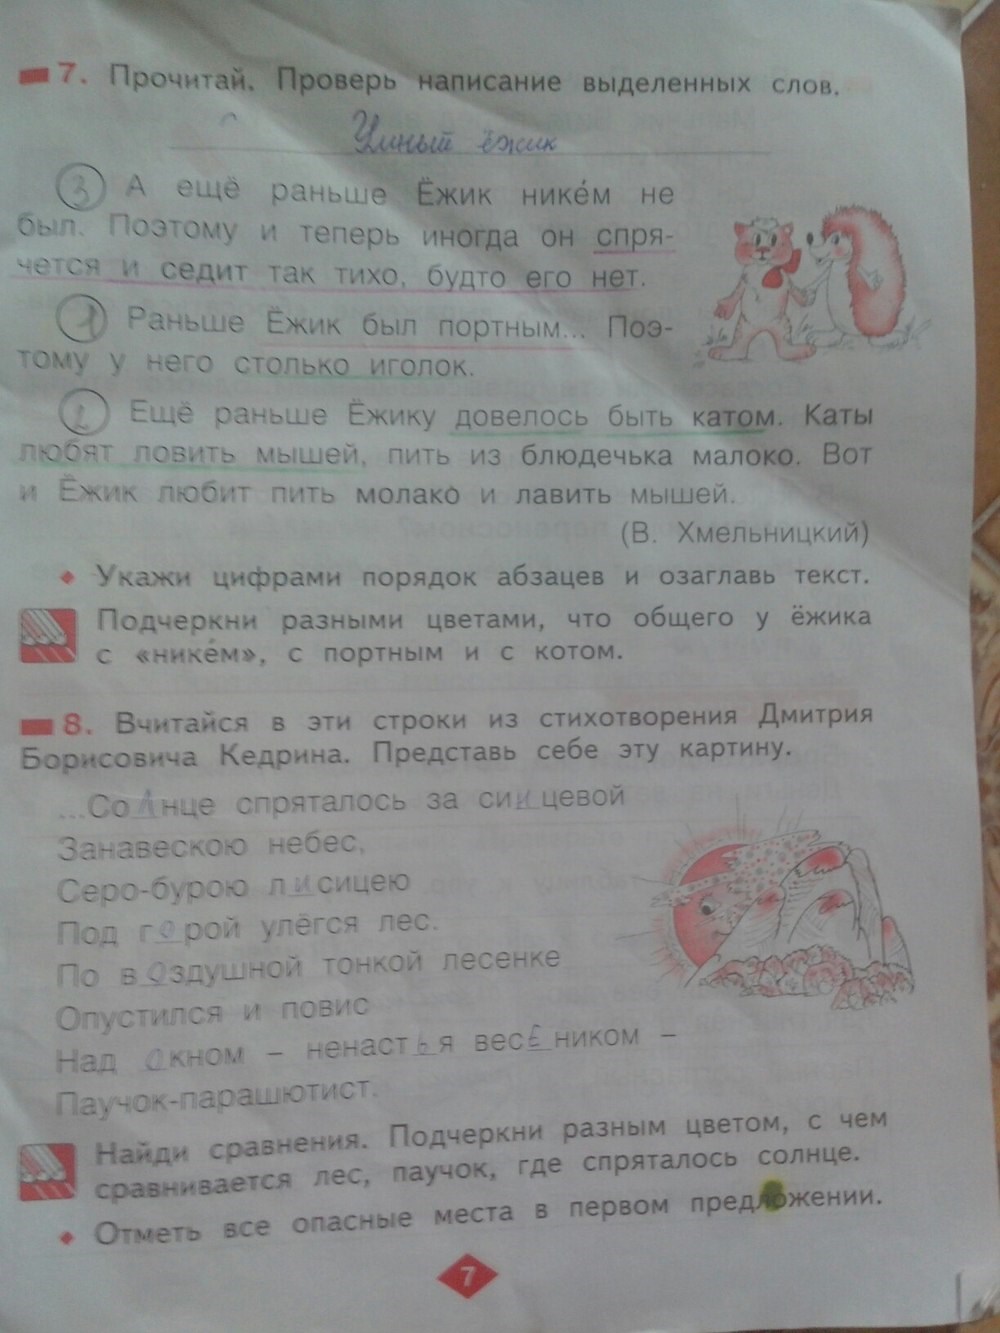 7. Прочитай. Проверь написание выделенных слов.
Умный ёжик
3 А ещё раньше Ёжик нике́м не
был. Поэтому и теперь иногда он спря-
чется и седит так тихо, будто его нет.
1 Раньше Ёжик был портным... Поэ-
тому у него столько иголок.
2 Ещё раньше Ёжику довелось быть катом. Каты
любят ловить мышей, пить из блюдечька малоко. Вот
и Ёжик любит пить молако и лавить мышей.
(В. Хмельницкий)
Укажи цифрами порядок абзацев и озаглавь текст.
Подчеркни разными цветами, что общего у ёжика
с «нике́м», с портным и с котом.
8. Вчитайся в эти строки из стихотворения Дмитрия
Борисовича Кедрина. Представь себе эту картину.
...Солнце спряталось за сицевой
Занавескою небес,
Серо-бурою лисицею
Под горой улёгся лес.
По воздушной тонкой лесенке
Опустился и повис
Над окном – ненастья весЕником –
Паучок-парашютист.
Найди сравнения. Подчеркни разным цветом, с чем
сравнивается лес, паучок, где спряталось солнце.
Отметь все опасные места в первом предложении.
7